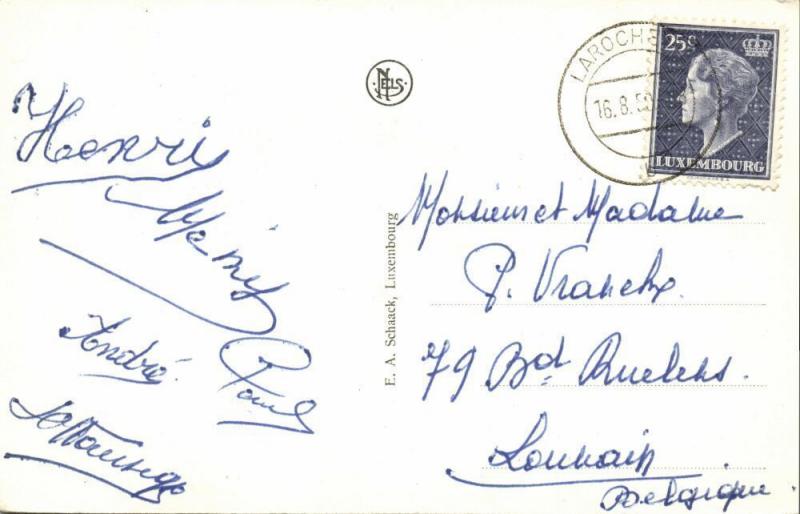 Henri
André
Paul
NELS
E. A. Schaack, Luxembourg
25c
LUXEMBOURG
16.8.5
Monsieur et Madame
P. Vranckx.
79 Bd Ruelens.
Louvain
Belgique